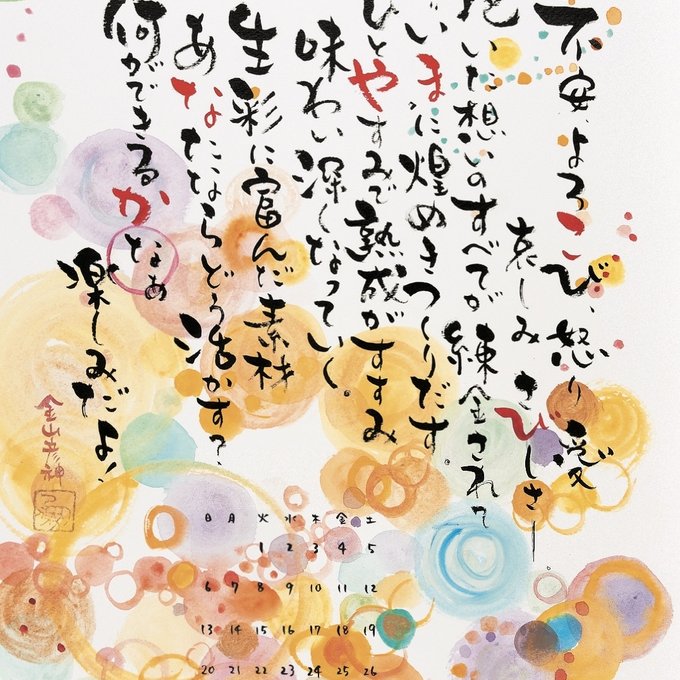 不安、よろこび、怒り 愛
哀しみ さびしさー
抱いた想いのすべてが 練金されて
いまに煌めきつくりだす
ひとやすみで熟成がすすみ
味わい深くなっていく。
生彩に富んだ素材
あなたならどう活かす?
何ができるかなぁ
楽しみだよ!
金山彦神
日 月 火 水 木 金 土
1 2 3 4 5
6 7 8 9 10 11 12
13 14 15 16 17 18 19
20 21 22 23 24 25 26